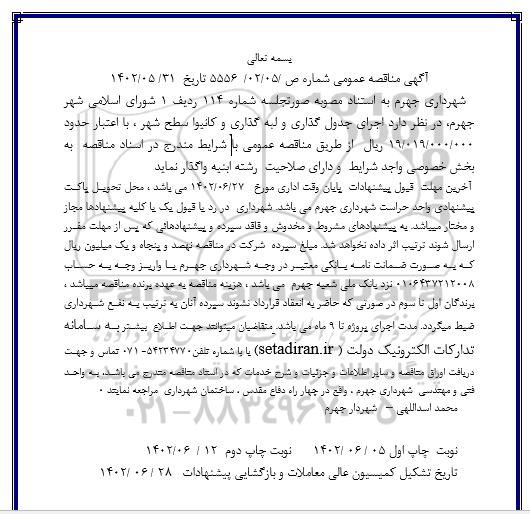 بسمه تعالی
آگهی مناقصه عمومی شماره ص /۰۲/۰۵/ ۵۵۵۶ تاریخ ۳۱/ ۰۵/ ۱۴۰۲
شهرداری جهرم به استناد مصوبه صورتجلسه شماره ۱۱۴ ردیف ۱ شورای اسلامی شهر
جهرم، در نظر دارد اجرای جدول گذاری و لبه گذاری و کانیوا سطح شهر ، با اعتبار حدود
۱۹/۰۱۹/۰۰۰/۰۰۰ ریال از طریق مناقصه عمومی با شرایط مندرج در اسناد مناقصه به
بخش خصوصی واجد شرایط و دارای صلاحیت رشته ابنیه واگذار نماید
آخرین مهلت قبول پیشنهادات پایان وقت اداری مورخ ۱۴۰۲/۰۶/۲۷ می باشد ، محل تحویل پاکت
پیشنهادی واحد حراست شهرداری جهرم می باشد. شهرداری در رد یا قبول یک یا کلیه پیشنهادها مجاز
و مختار میباشد. به پیشنهادهای مشروط و مخدوش و فاقد سپرده و پیشنهادهائی که پس از مهلت مقرر
ارسال شوند ترتیب اثر داده نخواهد شد. مبلغ سپرده شرکت در مناقصه نهصد و پنجاه و یک میلیون ریال
که به صورت ضمانت نامه بانکی معتبر در وجه شهرداری جهرم یا واریز وجه به حساب
۰۱۰۶۴۳۷۲۱۲۰۰۸ نزد بانک ملی شعبه جهرم می باشد ، هزینه مناقصه به عهده برنده مناقصه میباشد ،
برندگان اول تا سوم در صورتی که حاضر به انعقاد قرارداد نشوند سپرده آنان به ترتیب به نفع شهرداری
ضبط میگردد. مدت اجرای پروژه تا ۹ ماه می باشد. متقاضیان میتوانند جهت اطلاع بیشتر به سامانه
تدارکات الکترونیک دولت ( setadiran.ir) یا با شماره تلفن۵۴۲۳۴۷۷۰-۰۷۱ تماس و جهت
دریافت اوراق مناقصه و سایر اطلاعات و جزئیات و شرح خدمات که در اسناد مناقصه مندرج می باشد، به واحد
فنی و مهندسی شهرداری جهرم ، واقع در چهار راه دفاع مقدس ، ساختمان شهرداری مراجعه نمایند ۰
محمد اسداللهی – شهردار جهرم
نوبت چاپ اول ۰۵ /۰۶ /۱۴۰۲ نوبت چاپ دوم ۱۲ /۰۶ /۱۴۰۲
تاریخ تشکیل کمیسیون عالی معاملات و بازگشایی پیشنهادات ۲۸ /۰۶ /۱۴۰۲
۰۲۱-۸۸۳۴۹۶۷۰-۵